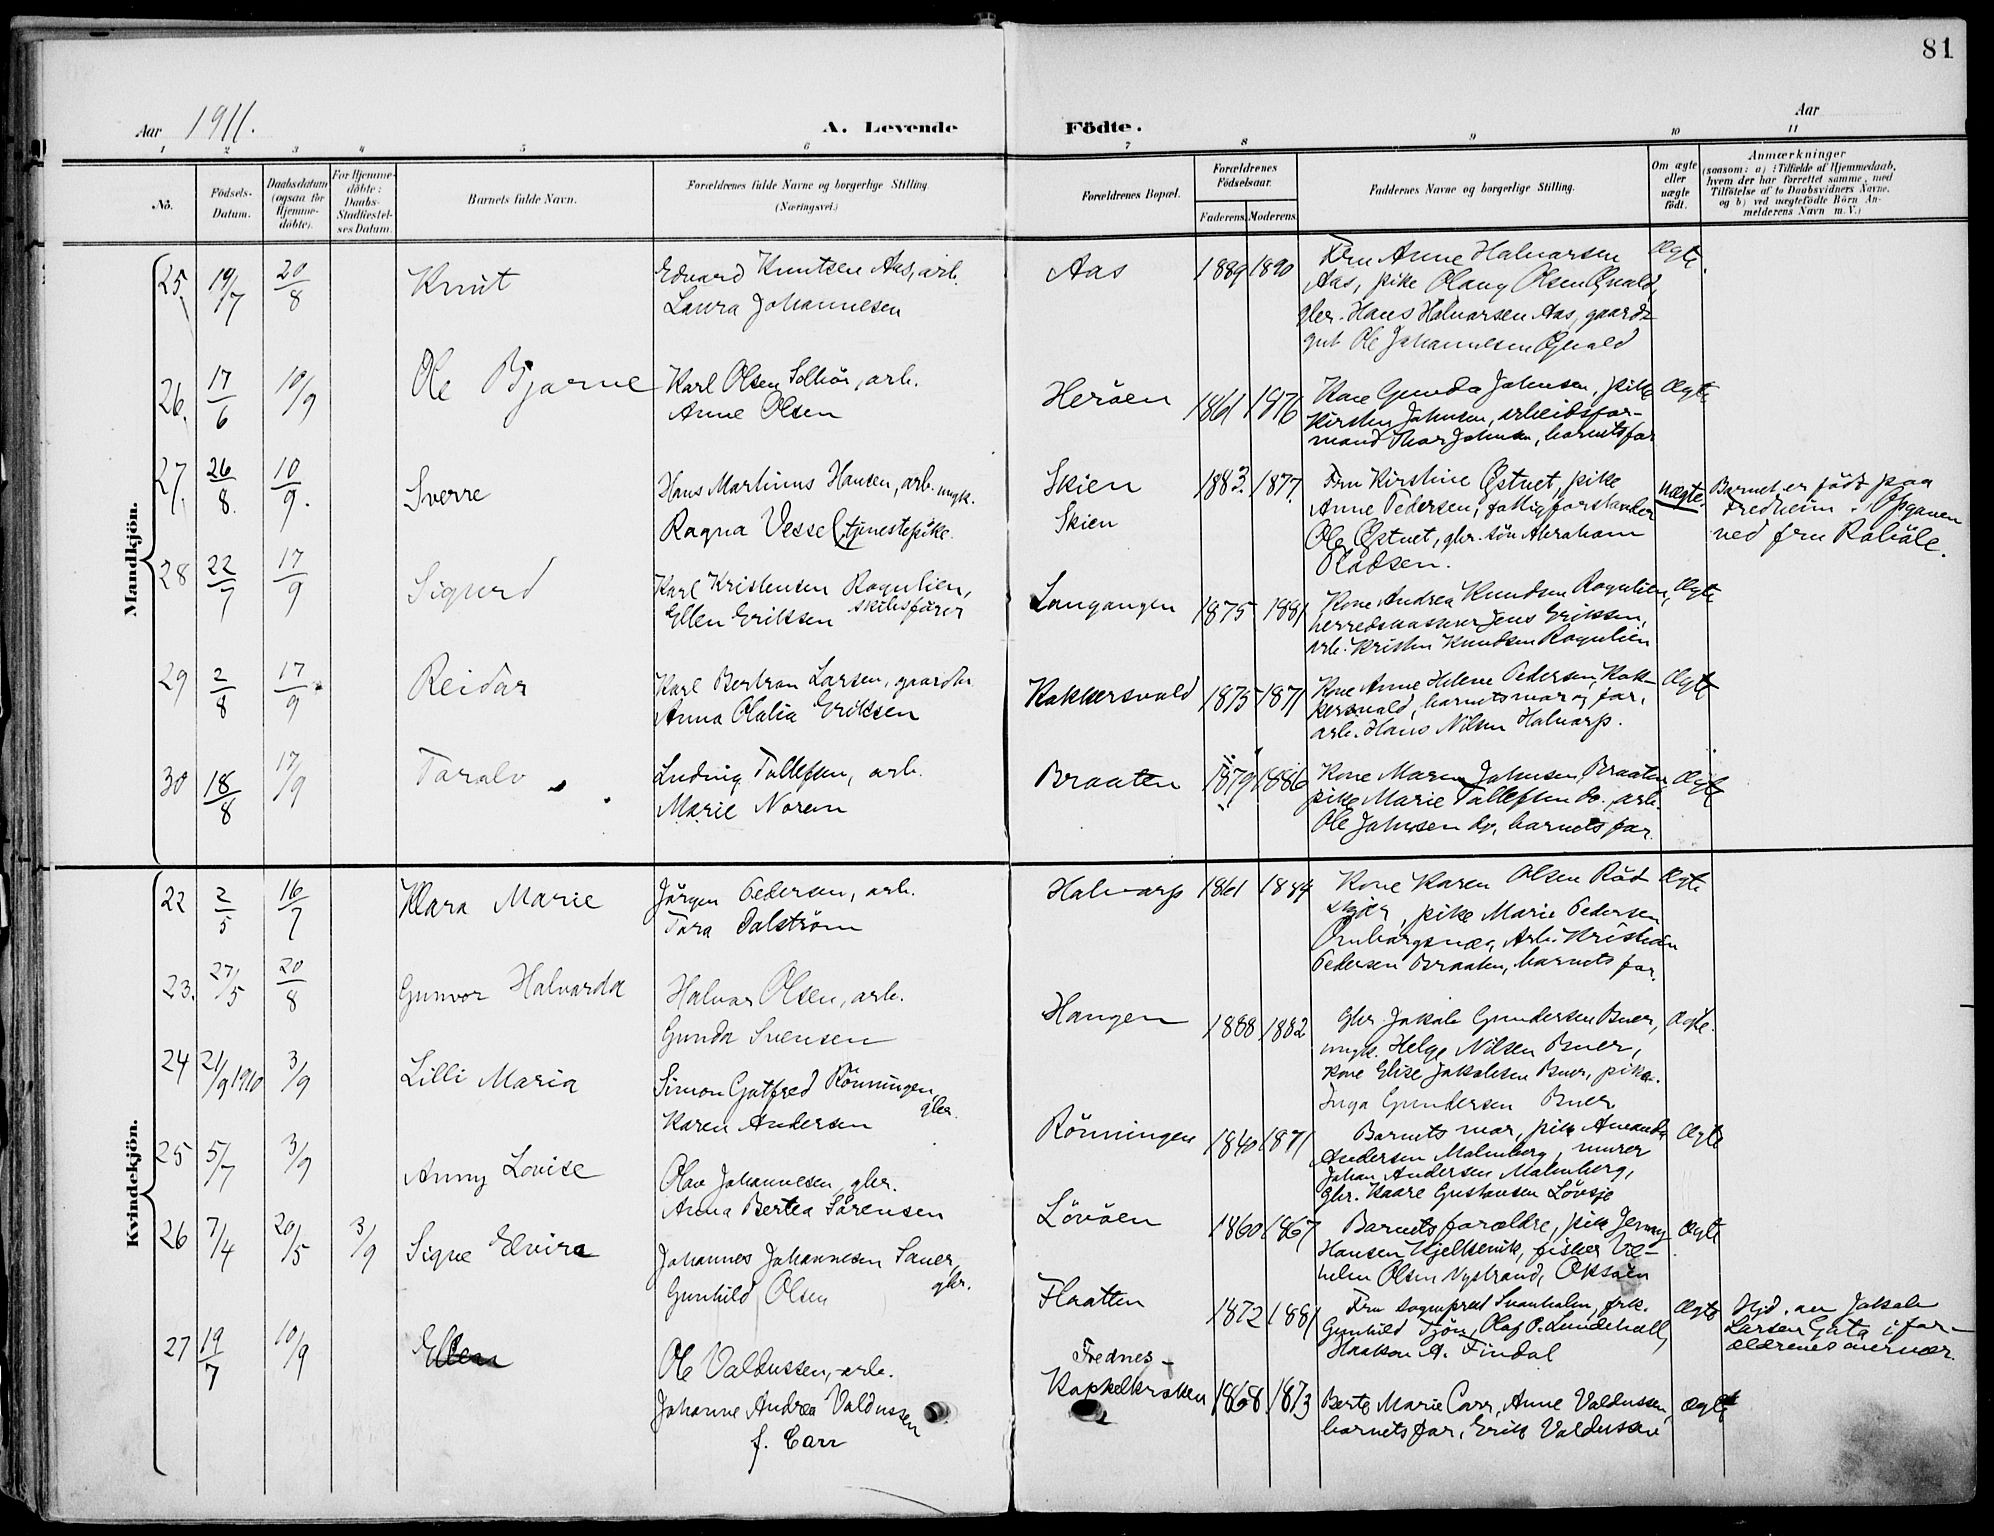 81
Aar 1911.
A. Levende
Födte.
Aar
1 2 3 4 5 6 7 8 9 10 11
No.
Födsels-
Datum.
Daabsdatum
(ogsaa for
Hjemme-
döbte).
For Hjemme-
döbte:
Daabs-
Stadfæstel-
ses Datum.
Barnets fulde Navn.
Forældrenes fulde Navne og borgerlige Stilling
(Næringsvei.)
Forældrenes Bopæl.
Forældrenes
Födselsaar.
Faderens. Moderens.
Faddernes Navne og borgerlige Stilling.
Om ægte
eller
uægte
födt.
Anmærkninger
(saasom: a) i Tilfælde af Hjemmedaab,
hvem der har forrettet samme, med
Tilföielse af to Daabsvidners Navne.
og b) ved uægtefödte Börn An-
melderens Navn m. V.)
Mandkjön.
25. 19/7 20/8 Knut
Edvard Knutsen Aas, arb.
Laura Johannesen
Aas 1889 1890
Fru Anne Halvarsen
Aas, pike Olaug Olsen Øvald,
gbr. Hans Halvorsen Aas, gaards-
gut Ole Johannesen Øvald
Ægte.
26. 17/6 10/9 Ole Bjarne
Karl Olsen, arb.
Anne Olsen
Heröen 1861 1876
Kone Gunda Johnsen, pike
Kirsten Johnsen, arbeidsfor-
mand Thor Johnsen, barnets far
Ægte
27. 26/8. 10/9. Sverre
Hans Martinus Hansen, arb. ungk.
Ragna Vessel, tjenestepike.
Skien
Skien
1883. 1877.
Fru Kirstine Østvet, pike
Anne Pedersen, fattigforstander
Ole Østvet, gbr. sön Abraham
Pladsen.
uægte.
Barnet er födt paa
Fredheim. Opgaven
ved fru
28 22/7 17/9 Sigurd
Karl Kristensen Rognlien,
skibsförer
Ellen Eriksen
Langangen 1875 1881
Kone Andrea Knudsen Rognlien,
herredskasserer Jens Eriksen,
arb. Kristen Knudsen Rognlien
Ægte
29 2/8 17/9 Reidar
Karl Bertran Larsen, gaardbr
Anna Olalia Eriksen
Kokkersvold 1875 1871
Kone Anne Helene Pedersen, Kok-
kersvold, barnets mor og far,
arb. Hans Nilsen Halvarp.
Ægte
30 18/8 17/9 Toralv
Ludvig Tollefsen, arb.
Marie Norem
Braaten 1879 1886
Kone Maren Johnsen, Braaten
pike Marie Tollefsen do. arb.
Ole Johnsen do, barnets far.
Ægte
Kvindekjön.
22 2/5 16/7 Klara Marie
Jörgen Pedersen, arb.
Tora Dalström
Halvarp 1861 1884
Kone Karen Olsen Röd-
skjær, pike Marie Pedersen
Arb. Kristian
Pedersen Braaten, barnets far.
Ægte
23. 27/5 20/8 Gunvor Halvarda
Halvor Olsen, arb.
Gunda Svensen
Haugen 1888 1882
Gbr. Jakob Gundersen Buer,
ungk. Helge Nilsen Buer,
Kone Elise Jakobsen Buer, pike.
Inga Gundersen Buer
Ægte.
24 21/9 1910 3/9 Lilli Maria
Simon Gotfred Rönningen,
gbr.
Karen Andersen
Rönningen 1840 1871
Barnets mor, pike Amanda
Andersen Malmberg, murer
Johan Andersen Malmberg,
Gbr. Kaare Gustavsen Lövsjö
Ægte
25 5/7 3/9 Anny Lovise
Olav Johannesen, gbr.
Anna Bertea Sörensen
Lövöen 1860 1867
Barnets forældre, pike Jenny
Hansen Kjelkevik, fisker Vil-
helm Olsen Nystrand, Oksöen
Ægte
26 7/4 20/5 3/9 Signe Elvira
Johannes Johannesen Sauer,
gbr.
Gunhild Olsen
Flaatten 1872 1881
Fru sogneprest Svanholm, frk.
Gunhild Tjön, Olaf P. Lundekvall,
Haakon A. Findal
Ægte
Hjd. av Jakob
Larsen Gata i for-
ældrenes nærvær.
27 19/7 10/9 Ellen
Ole Valdussen, arb.
Johanne Andrea Valdussen
f. Carr
Frednes-
Kapkelkroken 1868 1873
Berte Marie Carr, Anne Valdussen,
barnets far, Erik Valdussen
Ægte